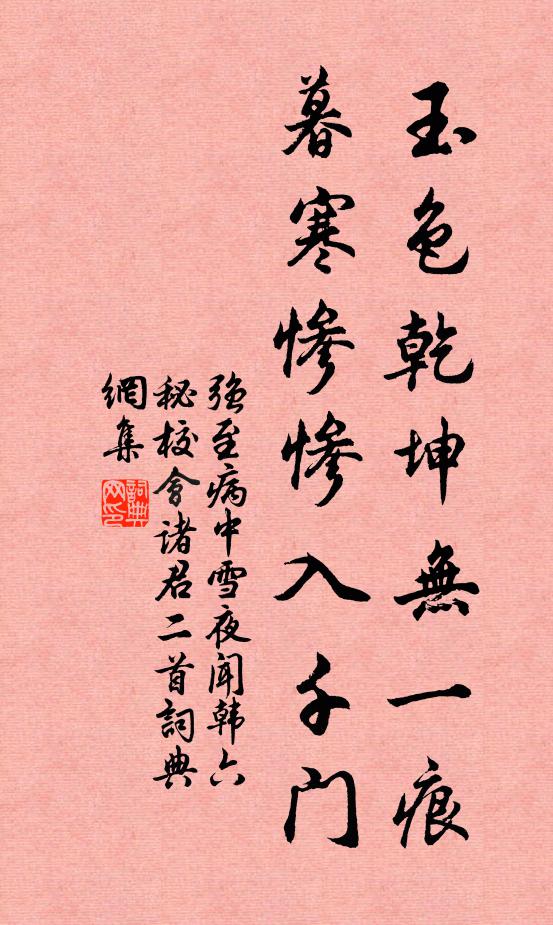 玉色乾坤無一痕
暮寒慘慘入千門
強至病中雪夜聞韩六
秘校會諸君二首詞典
網集
詞典
网印